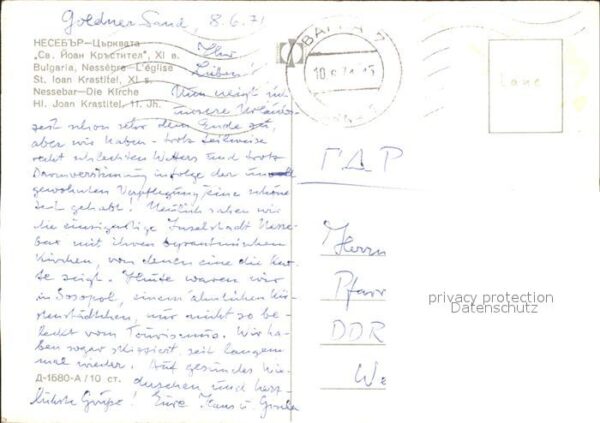 Goldner Sand, 8.6.71
НЕСЕБЪР—Църквата
„Св. Йоан Кръстител", XI в.
Bulgaria, Nessèbre—L'église
St. Ioan Krastitel, XI s.
Nessebar—Die Kirche
Hl. Joan Krastitel, 11. Jh.
Ihr
Lieben!
Nun neigt sich
unsere Urlaubs-
zeit schon sehr dem Ende zu,
aber wir haben – trotz teilweise
recht schlechten Wetters und trotz
Darmverstimmung infolge der
gewohnten Verpflegung, eine schöne
Zeit gehabt! Neulich sahen wir
die einzigartige Inselstadt Nesse-
bar mit ihren byzantinischen
Kirchen, von denen eine die Kar-
te zeigt. Heute waren wir
in Sosopol, einem ähnlichen
städtchen, nur nicht so be-
leckt vom Tourismus. Wir ha-
ben sogar skizziert, seit langem
mal wieder. Auf gesundes Wie-
Д-1680-А/10 ст.
dersehen und herz-
lichste Grüße! Eure Hans u. Gisela
ВАРНА
10.6.71-15
ГДР
Herrn
Pfarr
DDR
We
privacy protection
Datenschutz